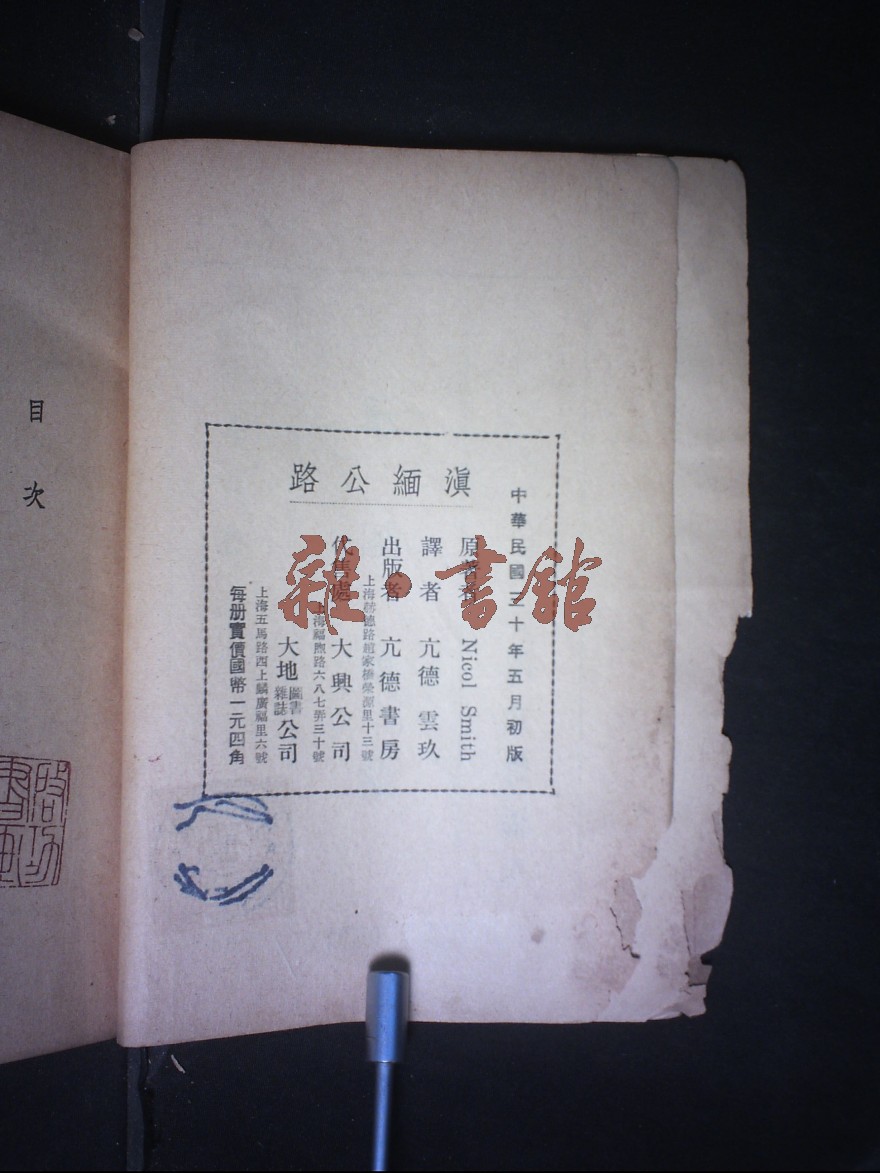 中華民國三十年五月初版
滇緬公路
原著者 Nicol Smith
譯者 亢德 雲玖
出版者 亢德書房
上海赫德路趙家橋榮源里十三號
代售處 大興公司
上海福煦路六八七弄三十號
大地圖書雜誌公司
上海五馬路西上麟廣福里六號
每册實價國幣一元四角
目次
雜·書館